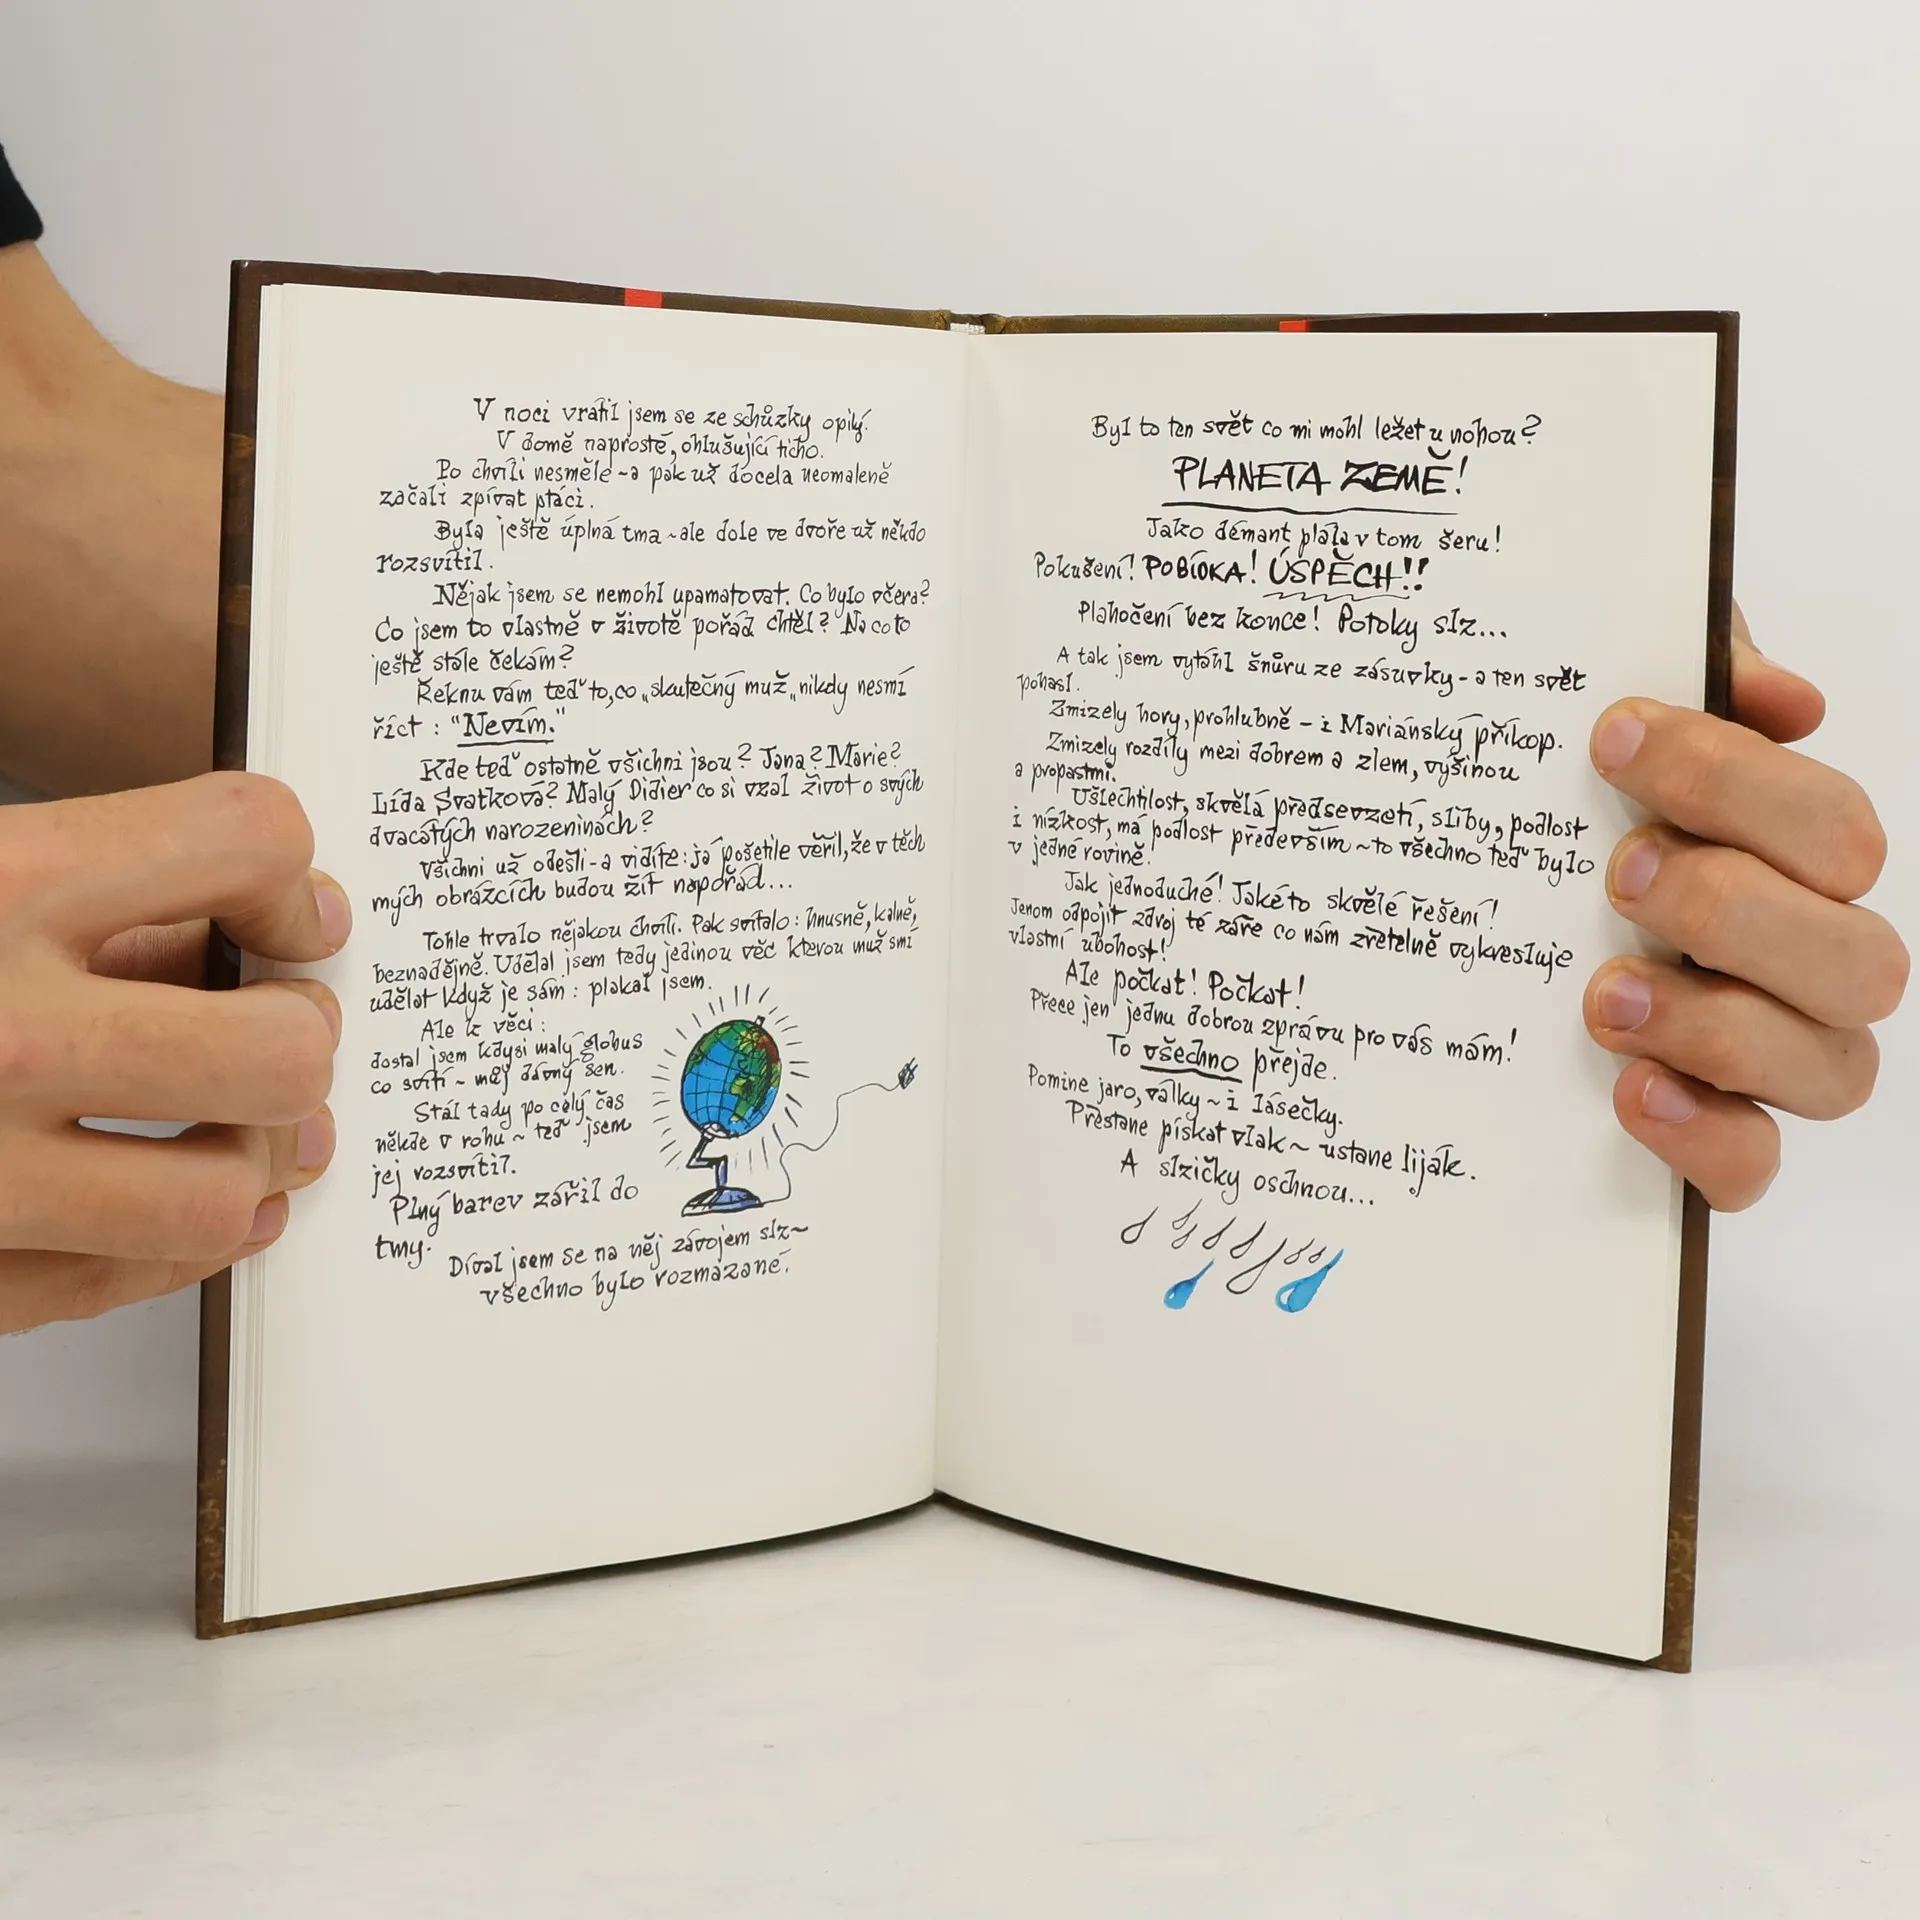 V noci vrátil jsem se ze schůzky opilý.
V domě naprosté, ohlušující ticho.
Po chvíli nesměle ~ a pak už docela neomaleně
začali zpívat ptáci.
Byla ještě úplná tma ~ ale dole ve dvoře už někdo
rozsvítil.
Nějak jsem se nemohl upamatovat. Co bylo včera?
Co jsem to vlastně v životě pořád chtěl? Na co to
ještě stále čekám?
Řeknu vám teď to, co „skutečný muž„ nikdy nesmí
říct : "Nevím."
Kde teď ostatně všichni jsou? Jana? Marie?
Lída Svatková? Malý Didier co si vzal život o svých
dvacátých narozeninách?
Všichni už odešli - a vidíte : já pošetile věřil, že v těch
mých obrázcích budou žít napořád...
Tohle trvalo nějakou chvíli. Pak svítalo : hnusně, kalně,
beznadějně. Udělal jsem tedy jedinou věc kterou muž smí
udělat když je sám : plakal jsem.
Ale k věci :
dostal jsem kdysi malý globus
co svítí ~ můj dávný sen.
Stál tady po celý čas
někde v rohu ~ teď jsem
jej rozsvítil.
Plný barev zářil do
tmy.
Díval jsem se na něj závojem slz ~
všechno bylo rozmazané.
Byl to ten svět co mi mohl ležet u nohou?
PLANETA ZEMĚ!
Jako démant plála v tom šeru!
Pokušení! POBÍDKA! ÚSPĚCH!!
Plahočení bez konce! Potoky slz...
A tak jsem vytáhl šňůru ze zásuvky - a ten svět
pohasl.
Zmizely hory, prohlubně - i Mariánský příkop.
Zmizely rozdíly mezi dobrem a zlem, vyšinou
a propastmi.
Ušlechtilost, skvělá předsevzetí, sliby, podlost
i nízkost, má podlost především ~ to všechno teď bylo
v jedné rovině.
Jak jednoduché! Jaké to skvělé řešení!
Jenom odpojit zdroj té záře co nám zřetelně vykresluje
vlastní ubohost!
Ale počkat! Počkat!
Přece jen jednu dobrou zprávu pro vás mám!
To všechno přejde.
Pomine jaro, války ~ i lásečky.
Přestane pískat vlak ~ ustane liják.
A slzičky oschnou...